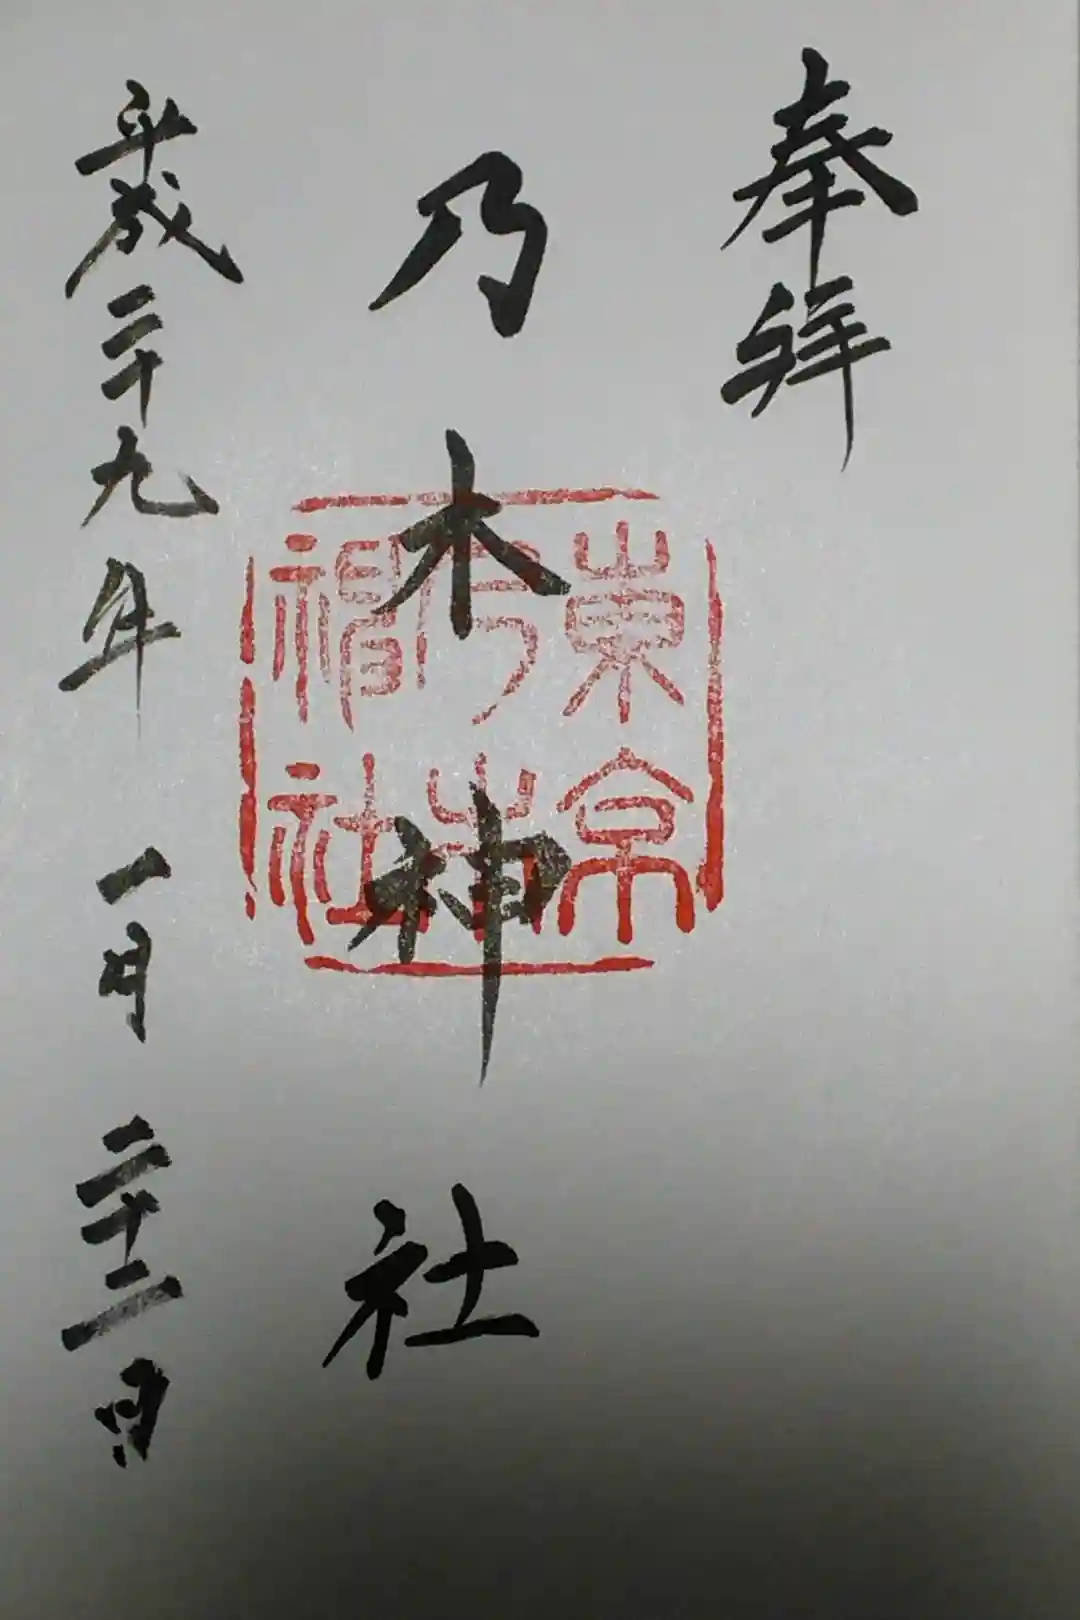 奉拝
乃木神社
東京
乃木
神社
平成二十九年一月二十二日